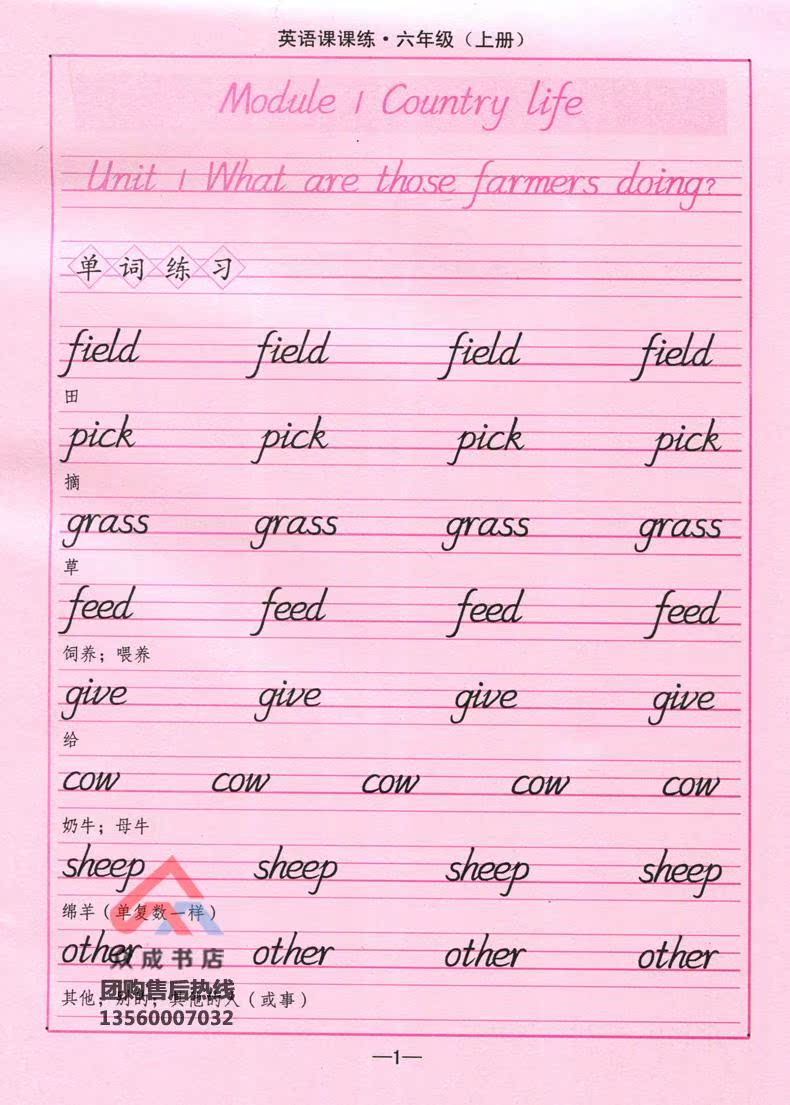 英语课课练·六年级（上册）
Module 1 Country life
Unit 1 What are those farmers doing?
单词练习
field field field field
田
pick pick pick pick
摘
grass grass grass grass
草
feed feed feed feed
饲养；喂养
give give give give
给
cow cow cow cow cow
奶牛；母牛
sheep sheep sheep sheep
绵羊（单复数一样）
other other other other
众成书店
其他；别的；其他的人（或事）
团购售后热线
13560007032
—1—